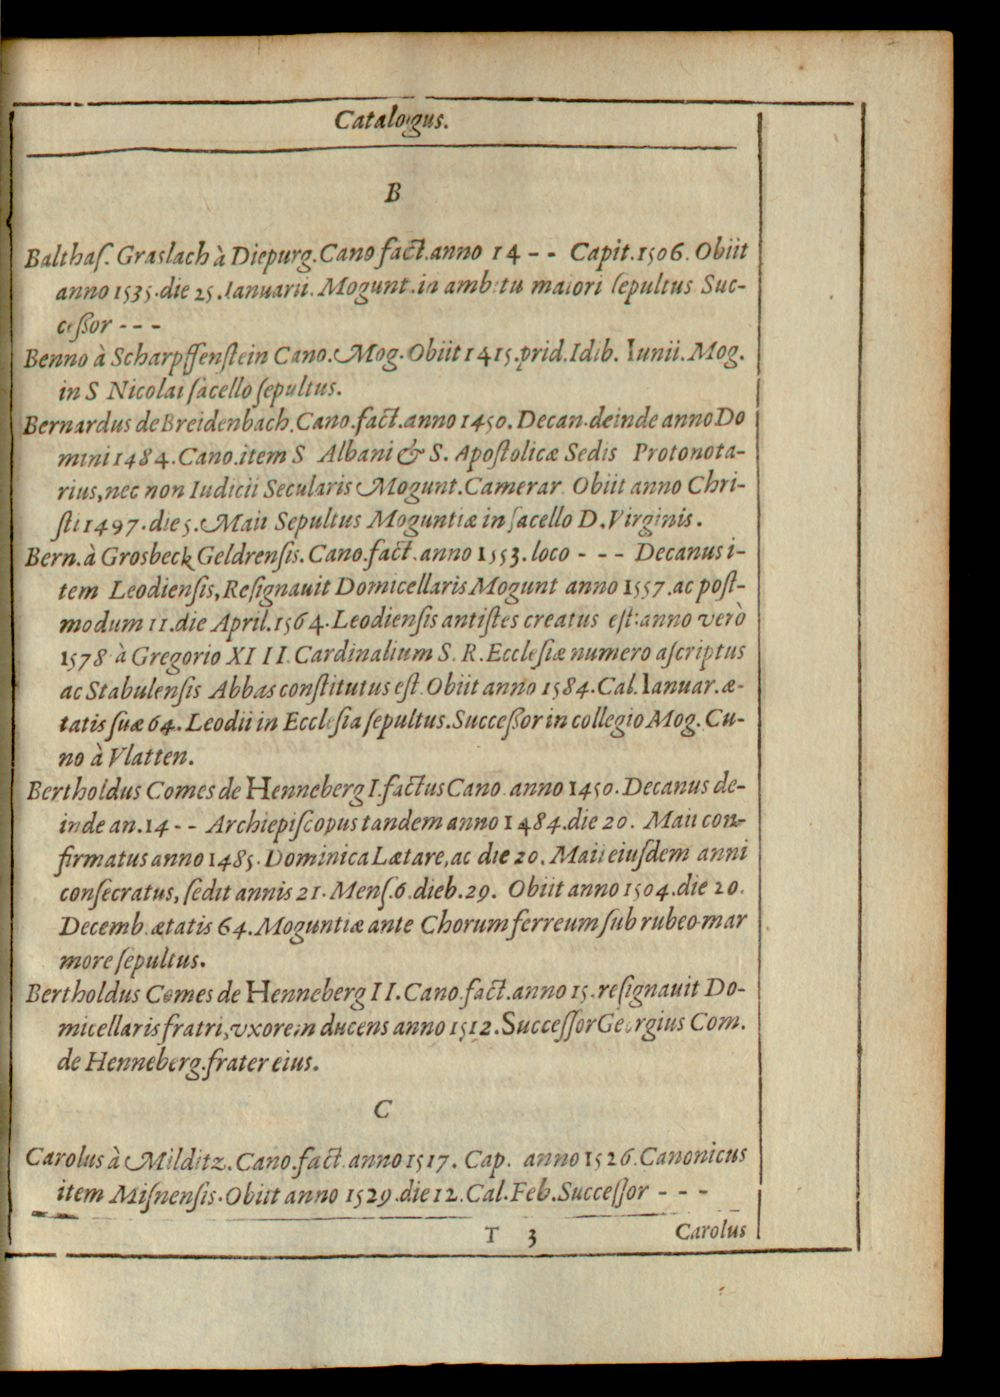 Catalogus.
B
Balthaſ. Graslach à Diepurg. Cano fact. anno 14 - - Capit. 1506. Obiit
anno 1535. die 25. Ianuarii. Mogunt. in ambitu maiori ſepultus Suc-
ceßor - - -
Benno à Scharpffenſtein Cano. Mog. Obiit 1415. prid. Idib. Iunii. Mog.
in S Nicolai ſacello ſepultus.
Bernardus de Breidenbach. Cano. fact. anno 1450. Decan. deinde anno Do
mini 1484. Cano. item S Albani & S. Apoſtolicæ Sedis Protonota-
rius, nec non Iudicii Secularis Mogunt. Camerar. Obiit anno Chri-
ſti 1497. die 5. Maii Sepultus Moguntiæ in ſacello D. Virginis.
Bern. à Grosbeck Geldrenſis. Cano. fact. anno 1553. loco - - - Decanus i-
tem Leodienſis, Reſignauit Domicellaris Mogunt anno 1557. ac poſt-
modum 11. die April. 1564. Leodienſis antiſtes creatus eſt: anno verò
1578 à Gregorio XIII. Cardinalium S. R. Eccleſiæ numero aſcriptus
ac Stabulenſis Abbas conſtitutus eſt. Obiit anno 1584. Cal. Ianuar. æ-
tatis ſuæ 64. Leodii in Eccleſia ſepultus. Succeßor in collegio Mog. Cu-
no à Vlatten.
Bertholdus Comes de Henneberg I. factus Cano. anno 1450. Decanus de-
inde an. 14 - - Archiepiſcopus tandem anno 1484. die 20. Maii con-
firmatus anno 1485. Dominica Lætare, ac die 20. Maii eiuſdem anni
conſecratus, ſedit annis 21. Menſ. 6. dieb. 29. Obiit anno 1504. die 20.
Decemb. ætatis 64. Moguntiæ ante Chorum ferreum ſub rubeo mar
more ſepultus.
Bertholdus Comes de Henneberg II. Cano. fact. anno 15. reſignauit Do-
micellaris fratri, vxorem ducens anno 1512. Succeſſor Georgius Com.
de Henneberg. frater eius.
C
Carolus à Milditz. Cano. fact. anno 1517. Cap. anno 1526. Canonicus
item Miſnenſis. Obiit anno 1529. die 12. Cal. Feb. Succeſſor - - -
T 3 Carolus